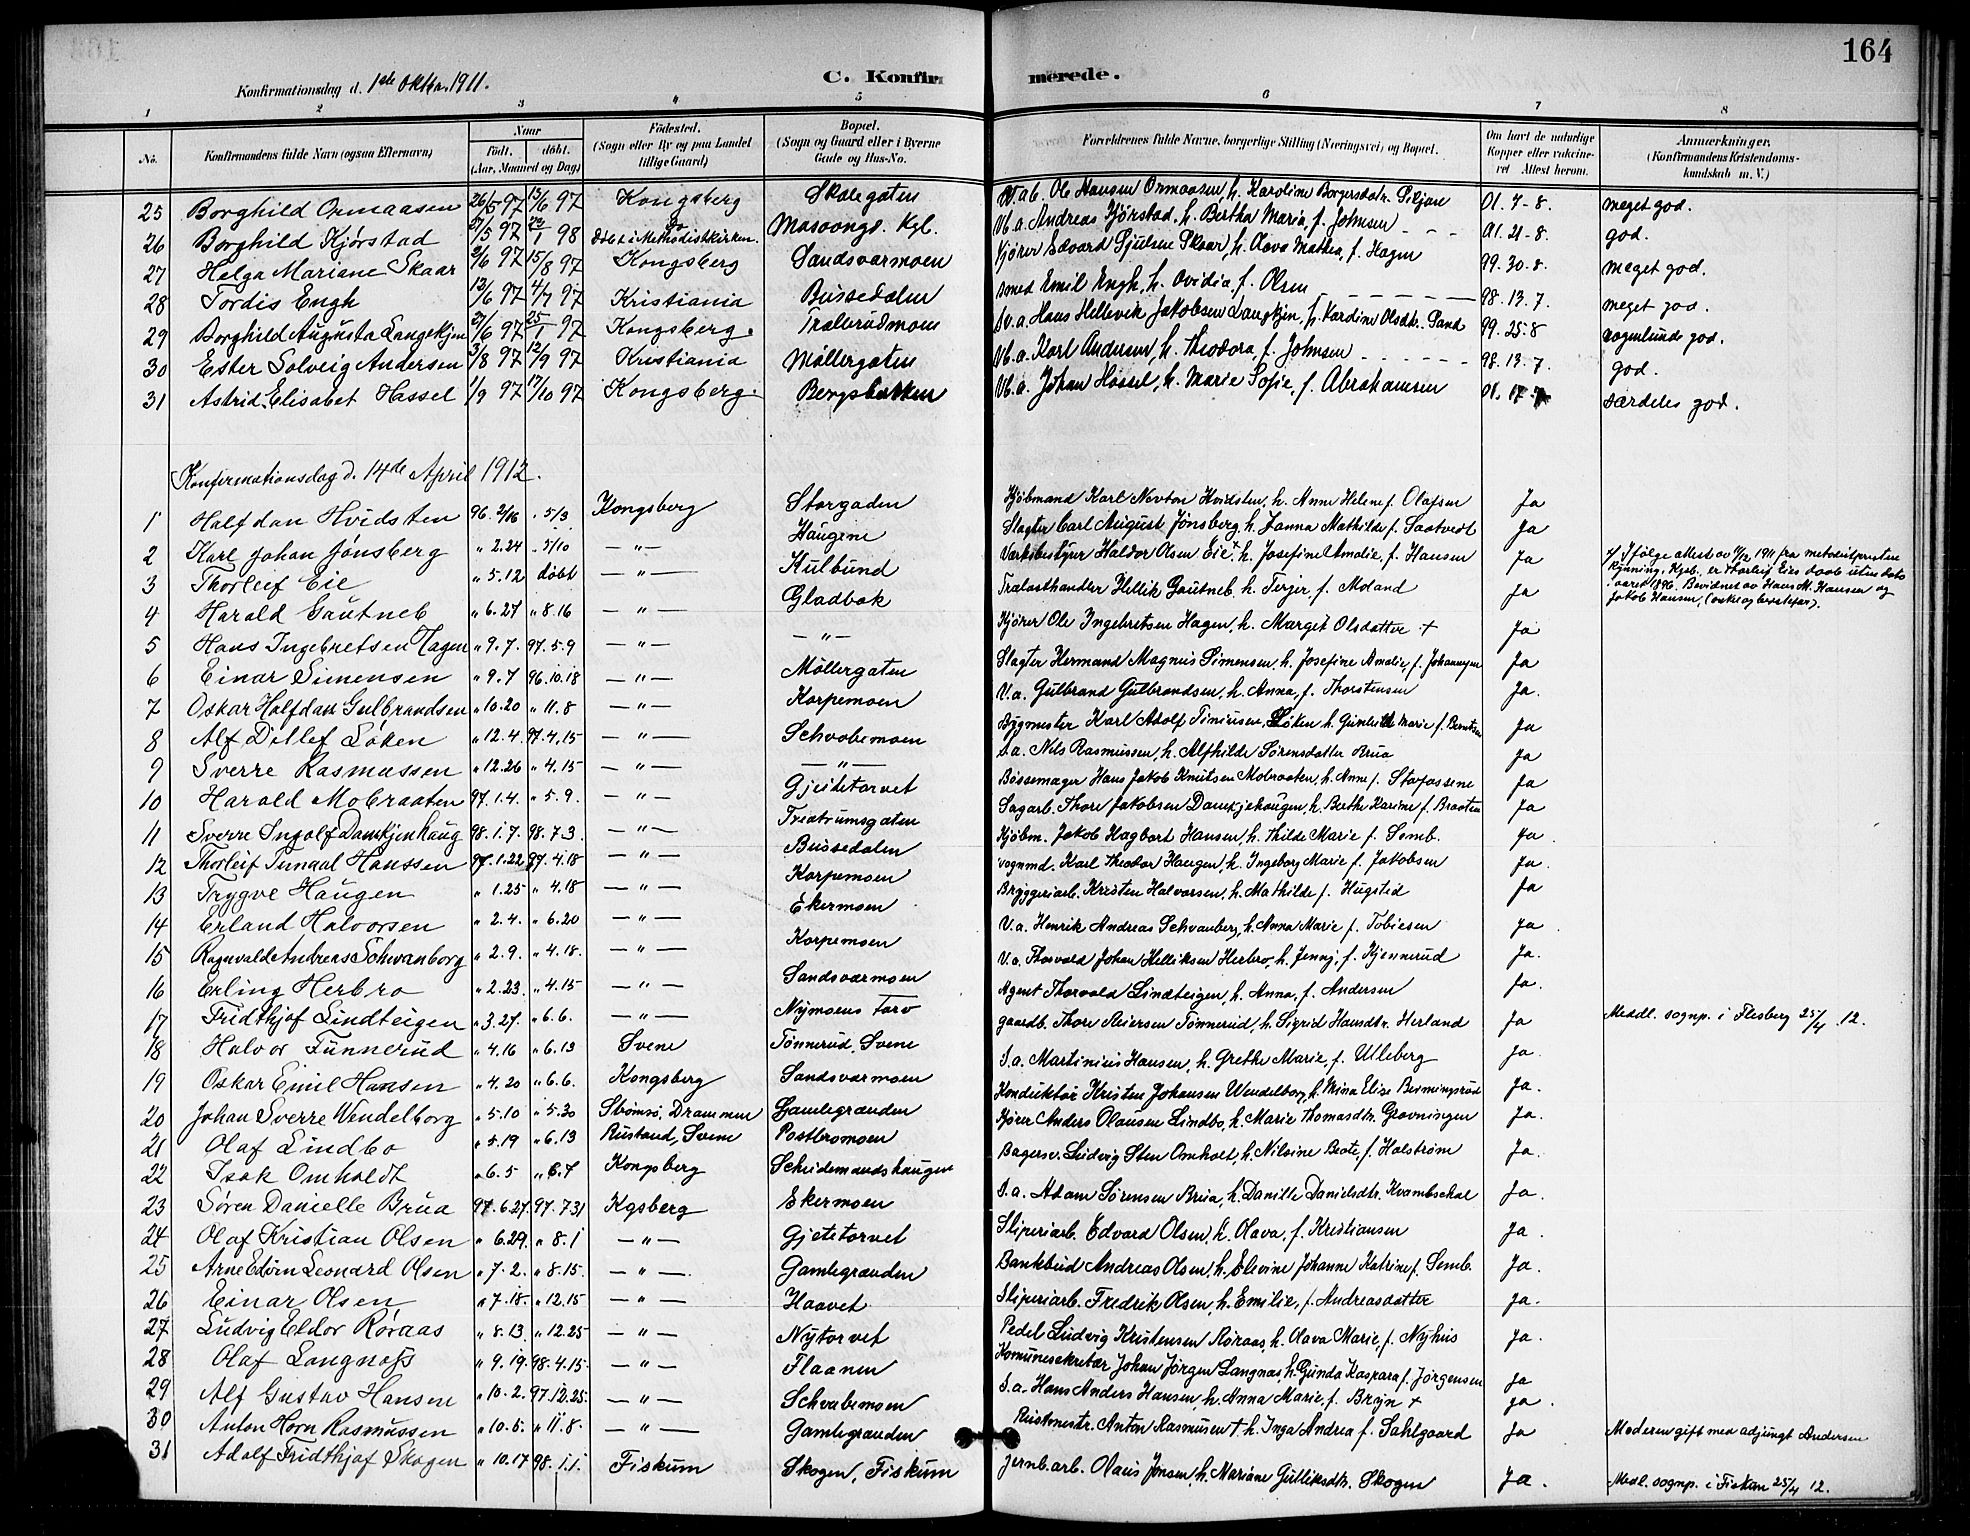 164
Konfirmationsdag d. 1ste Oktbr. 1911.
C. Konfirmerede.
1 2 3 4 5 6 7 8
No.
Konfirmandens fulde Navn (ogsaa Efternavn)
Naar
født. døbt.
(Aar, Maaned og Dag)
Fødested.
(Sogn eller By og paa Landet
tillige Gaard)
Bopæl.
(Sogn og Gaard eller i Byerne
Gade og Hus-No.
Forældrenes fulde Navne, borgerlige Stilling (Næringsvei) og Bopæl.
Om havt de naturlige
Kopper eller vaccine-
ret Attest herom.
Anmærkninger.
(Konfirmandens Kristendoms-
kundskab m. V.)
25 Borghild Ormaasen 26/5 97 13/6 97 Kongsberg Skolegaten V.a.b. Ole Hansen Ormaasen, h. Karoline Borgersdatr. Siljan 01. 7-8. meget god.
26 Borghild Kjørstad 97 98 Døbt i Methodistkirken. Kgb. V.b.a. Andreas Kjørstad, h. Bertha Maria, f. Johnsen 01. 21-8. god.
27 Helga Mariane Skaar 2/6 97 15/8 97 Kongsberg Sandsværmoen Kjører Edvard Sjulsen Skaar, h. Olava Mathea, f. Hagen 99. 30.8. meget god.
28 Tordis Engh 13/6 97 4/7 97 Kristiania Bussedalen smed Emil Engh, h. Ovidia, f. Olsen 98. 13. 7. meget god.
29 Borghild Augusta Langekjen 97 97 Kongsberg. Hans Hellevik Jakobsen Langkjen, h. Kardine Olsdtr. Sand 99. 25-8 nogenlunde god.
30 Ester Solveig Andersen 3/8 97 12/9 97 Kristiania Møllergaten V.b.a. Karl Andersen, h. Theodora, f. Johnsen 98. 13. 7. god.
31 Astrid Elisabet Hassel 1/9 97 17/10 97 Kongsberg. Bergsbakken V.b.a. Johan Hassel, h. Marie Sofie, f. Abrahamsen 01. 17-7 særdeles god.
Konfirmationsdag d. 14de April 1912.
1 Halfdan Hvidsten 96. 2/16 " 5/3 Kongsberg Storgaden Kjøbmand Karl Nevton Hvidsten, h. Anne Helene f. Olafsen Ja
2 Karl Johan Jønsberg " 2.24 " 5/10 — " — Haugene Slagter Carl August Jønsberg, h. Janna Mathilde f. Saatvedt Ja
3 Thorleif Eie " 5.12 døbt — " — Kulbund Værksbestyrer Haldor Olsen Eie, h. Josefine Amalie, f. Hansen Ja Ifølge attest av 1911 fra metodistprestene
Rynning, Kgsb. er Thorleif Eies daab uten dato
aaret 1896. Bevidnet av Hans M. Hansen og
Jakob Hansen,
4 Harald Gautneb " 6.27 " 8.16 — " — Gladbak Trælasthandler Hellik Gautneb, h. Terjer, f. Moland Ja
5 Hans Ingebretsen Hagen " 9.7. 97.5.9 — " — — " — Kjører Ole Ingebretsen Hagen, h. Marget Olsdatter + Ja
6 Einar Simensen " 9.7 96.10.18 — " — Møllergaten Slagter Hermand Magnus Simensen, h. Josefine Amalie, f. Johannesen Ja
7 Oskar Halfdan Gulbrandsen " 10.20 " 11.8 — " — Korpemoen V.a. Gulbrand Gulbrandsen, h. Anna, f. Thorstensen Ja.
8 Alf Ditlef Løken " 12.4. 97.4.15 — " — Schvabemoen Bygmester Karl Adolf Simensen Løken h. Gunhild Marie f. Berntsen Ja
9 Sverre Rasmussen " 12.26 " 4.15 — " — — " — S.a. Nils Rasmussen, h. Alfhilde Sørensdatter Brua Ja
10 Harald Mobraaten 97.1.4. " 5.9. — " — Gjeitetorvet Bøssemager Hans Jakob Knutsen Mobraaten, h. Anne f. Ja
11 Sverre Ingolf Damkjenhaug 98.1.7. 98.7.3. — " — Sagarb. Thore Jakobsen Damkjehaugen, h. Berthe Karine f. Braaten Ja
12 Thorleif Hanssen 97.1.22 97.4.18 — " — Bussedalen Kjøbm. Jakob Hagbart Hansen, h. Thilde Marie f. Semb. Ja
13 Trygve Haugen " 1.25 " 4.18 — " — Korpemoen vognmd. Karl Theodor Haugen, h. Ingeborg Marie f. Jakobsen Ja.
14 Erland Halvorsen " 2.4. " 6.20 — " — Ekermoen Bryggeriarb. Kristen Halvorsen, h. Mathilde f. Hugsted Ja
15 Ragnvald Andreas Schwanborg " 2.9. " 4.18. — " — Korpemoen V.a. Henrik Andreas Schvanberg, h. Anna Marie f. Tobiesen Ja
16 Erling Herbro " 2.23. " 4.15 — " — Sandsværmoen V.a. Thorvald Johan Helliksen Herbro, h. Jenny, f. Kjennerud Ja.
17 Fridthjof Lindteigen " 3.27. " 6.6. — " — Nymoens Torv Agent Thorvald Lindteigen, h. Anna, f. Andersen Ja.
18 Halvor Tunnerud " 4.16 " 6.13 Svene Tønnerud, Svene gaardb. Thore Reiersen Tønnerud, h. Sigrid Hansdtr. Herland Ja Meddl. sognp. i Flesberg 25/4 12.
19 Oskar Emil Hansen " 4.20 " 6.6. Kongsberg Sandsværmoen S.a. Martinius Hansen, h. Grethe Marie, f. Ulleberg Ja.
20 Johan Sverre Wendelborg " 5.10 " 5.30 Strømsø, Drammen Gamlegrænden Konduktør Kristen Johansen Wendelborg, h. Mina Elise Ja.
21 Olaf Lindbo " 5.19 " 6.13 Rustand, Svene Postbromoen Kjører Anders Olausen Lindbo, h. Marie Thomasdtr. Grovningen Ja.
22 Isak Omholdt " 6.5 " 6.7 Kongsberg Scheidemandshaugen Bagersv. Ludvig Sten Omholt, h. Nilsine Beate, f. Holstrøm Ja.
23 Søren Danielle Brua 97.6.27 97.7.31 Kgsberg Ekermoen S.a. Adam Sørensen Brua, h. Danille Danielsdtr. Kvambsekal Ja.
24 Olaf Kristian Olsen " 6.29. " 8.1 — " — Gjetetorvet Sliperiarb. Edvard Olsen, h. Olava, f. Kristiansen Ja.
25 Arne Edvin Leonard Olsen " 7.2. " 8.15. — " — Gamlegrænden Bankbud Andreas Olsen, h. Elevine Johanne Katrine f. Semb. Ja.
26 Einar Olsen " 7.18. " 12.15 — " — Haavet Sliperiarb. Fredrik Olsen, h. Emilie, f. Andreasdatter Ja.
27 Ludvig Eldor Røraas " 8.13. " 12.25 — " — Nytorvet Pedel Ludvig Kristensen Røraas, h. Olava Marie, f. Nyhus Ja.
28 Olaf Langnæss " 9.19. 98.4.15. — " — Flaanen Komunesekretær Johan Jørgen Langnæs h. Gunda Kaspara f. Jørgensen Ja
29 Alf Gustav Hansen " 10.2. 97.12.25. — " — Schvabemoen S.a. Hans Anders Hansen, h. Anna Marie, f. Bryn + Ja.
30 Anton Horn Rasmussen " 10.5. " 11.8. — " — Gamlegrænden Rustmestr. Anton Rasmusen + h. Inga Andrea f. Sahlgaard Ja Moderen gift med adjungt Andersen
31 Adolf Fridthjof Skogen " 10.17 98.1.1. Fiskum Skogen, Fiskum Jernb.arb. Olaus Jensen, h. Mariane Gulliksdtr. Skogen Ja. Medl. sognp. i Fiskum 25/4 12.